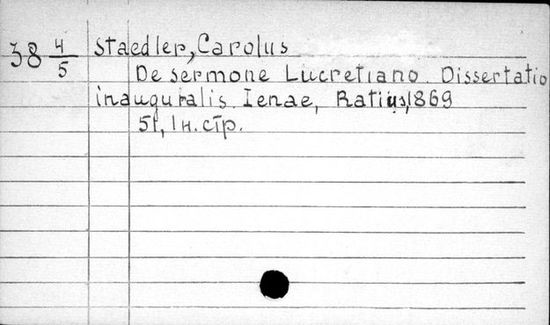 38 4/5
Staedler, Carolus
De sermone Lucretiano. Dissertatio
inauguralis. Ienae, Ratius, 1869
51, 1 н. стр.